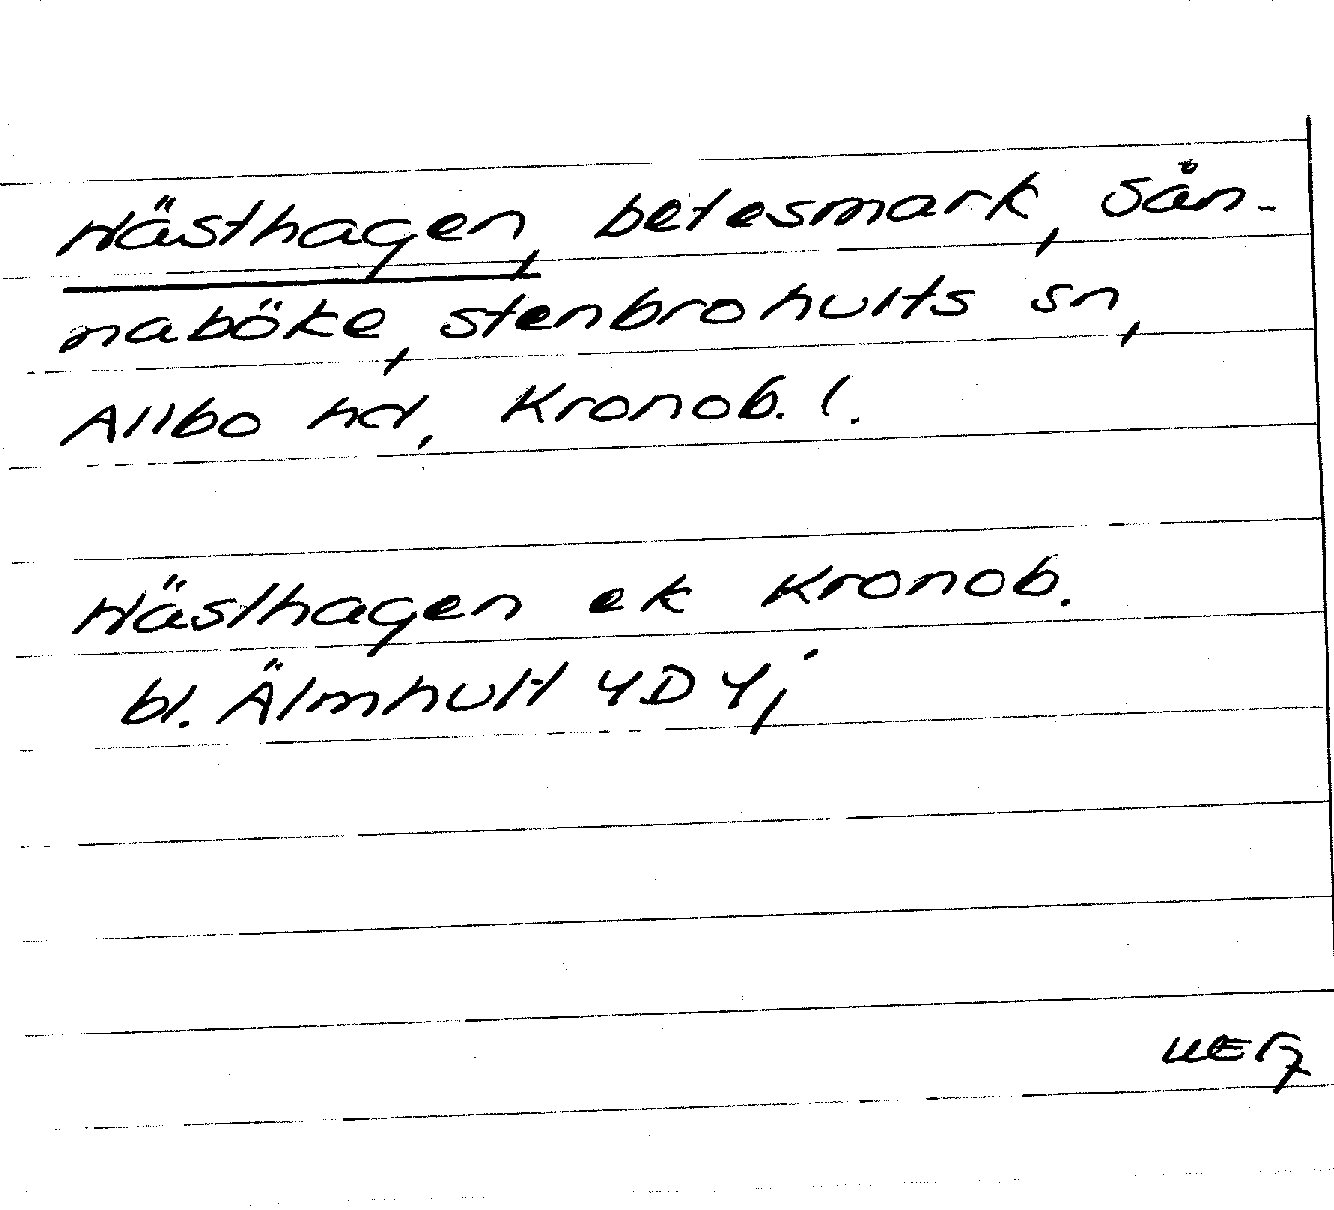 Hästhagen, betesmark, Sån-
naböke, Stenbrohults sn,
Allbo hd, Kronob. l.
Hästhagen ek Kronob.
bl. Älmhult 4D 4j